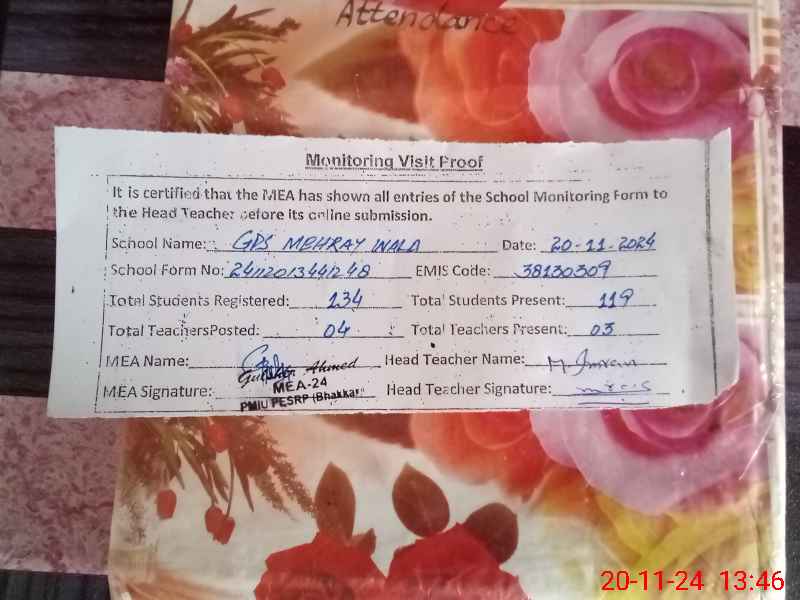 Attendance
Monitoring Visit Proof
It is certified that the MEA has shown all entries of the School Monitoring Form to
the Head Teacher before its online submission.
School Name: GPS MEHRAY WALA Date: 20-11-2024
School Form No: EMIS Code: 38130309
Total Students Registered: 134 Total Students Present: 119
Total TeachersPosted: 04 Total Teachers Present: 03
MEA Name: Head Teacher Name: M. Imran
Ahmed
MEA Signature: MEA-24 Head Teacher Signature:
PMIU PESRP (Bhakkar)
20-11-24 13:46